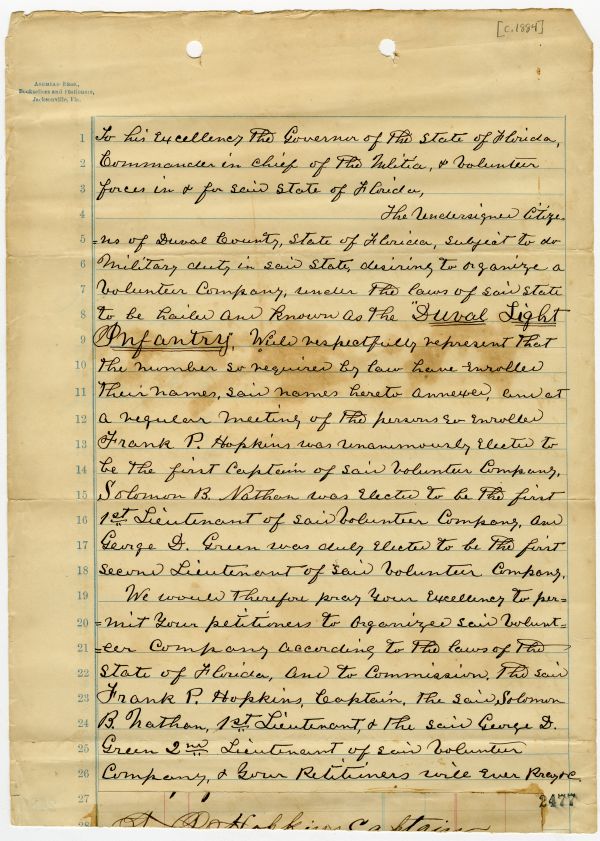 [c. 1884]
Ashmead Bros.,
Booksellers and Stationers,
Jacksonville, Fla.
1 To his Excellency the Governor of the State of Florida,
2 Commander in chief of the Militia, & Volunteer
3 forces in & for said State of Florida,
4 The Undersigned Citize-
5 =ns of Duval County, State of Florida, subject to do
6 Military duty in said State, desiring to organize a
7 Volunteer Company, under the laws of said State
8 to be hailed and known as the "Duval Light
9 Infantry", Would respectfully represent that
10 the number so required by law have Enrolled
11 their names, said names hereto annexed, and at
12 a regular meeting of the persons so Enrolled
13 Frank P. Hopkins was unanimously Elected to
14 be the first Captain of said Volunteer Company,
15 Solomon B. Nathan was Elected to be the first
16 1st Lieutenant of said Volunteer Company, and
17 George D. Green was duly Elected to be the first
18 second Lieutenant of said Volunteer Company.
19 We would therefore pray Your Excellency to per=
20 =mit Your petitioners to organize said Volunt=
21 =eer Company according to the laws of the
22 State of Florida, and to Commission, the said
23 Frank P. Hopkins, Captain, the said, Solomon
24 B. Nathan, 1st Lieutenant, & the said George D.
25 Green 2nd Lieutenant of said Volunteer
26 Company, & Your Petitioners will Ever Pray &c.
27 2477
28 Hopkins Captain